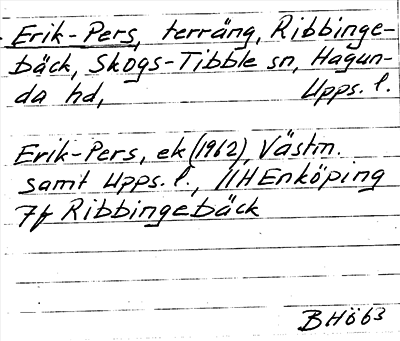 Erik-Pers, terräng, Ribbinge-
bäck, Skogs-Tibble sn, Hagun-
da hd, Upps. l.
Erik-Pers, ek (1962), Västm.
samt Upps. l., 11H Enköping
7f Ribbingebäck
BHö 63